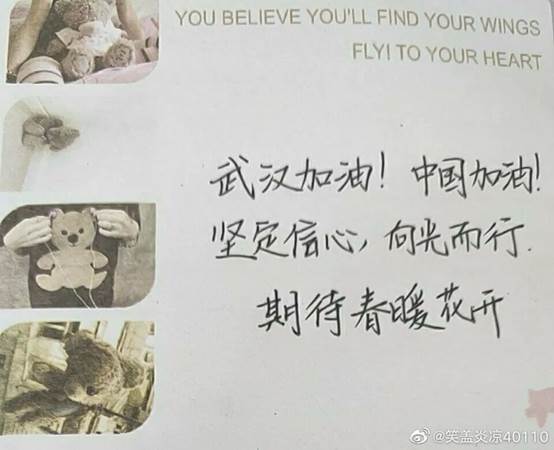 YOU BELIEVE YOU'LL FIND YOUR WINGS
FLY! TO YOUR HEART
武汉加油！中国加油！
坚定信心，向光而行.
期待春暖花开
@笑盖炎凉40110